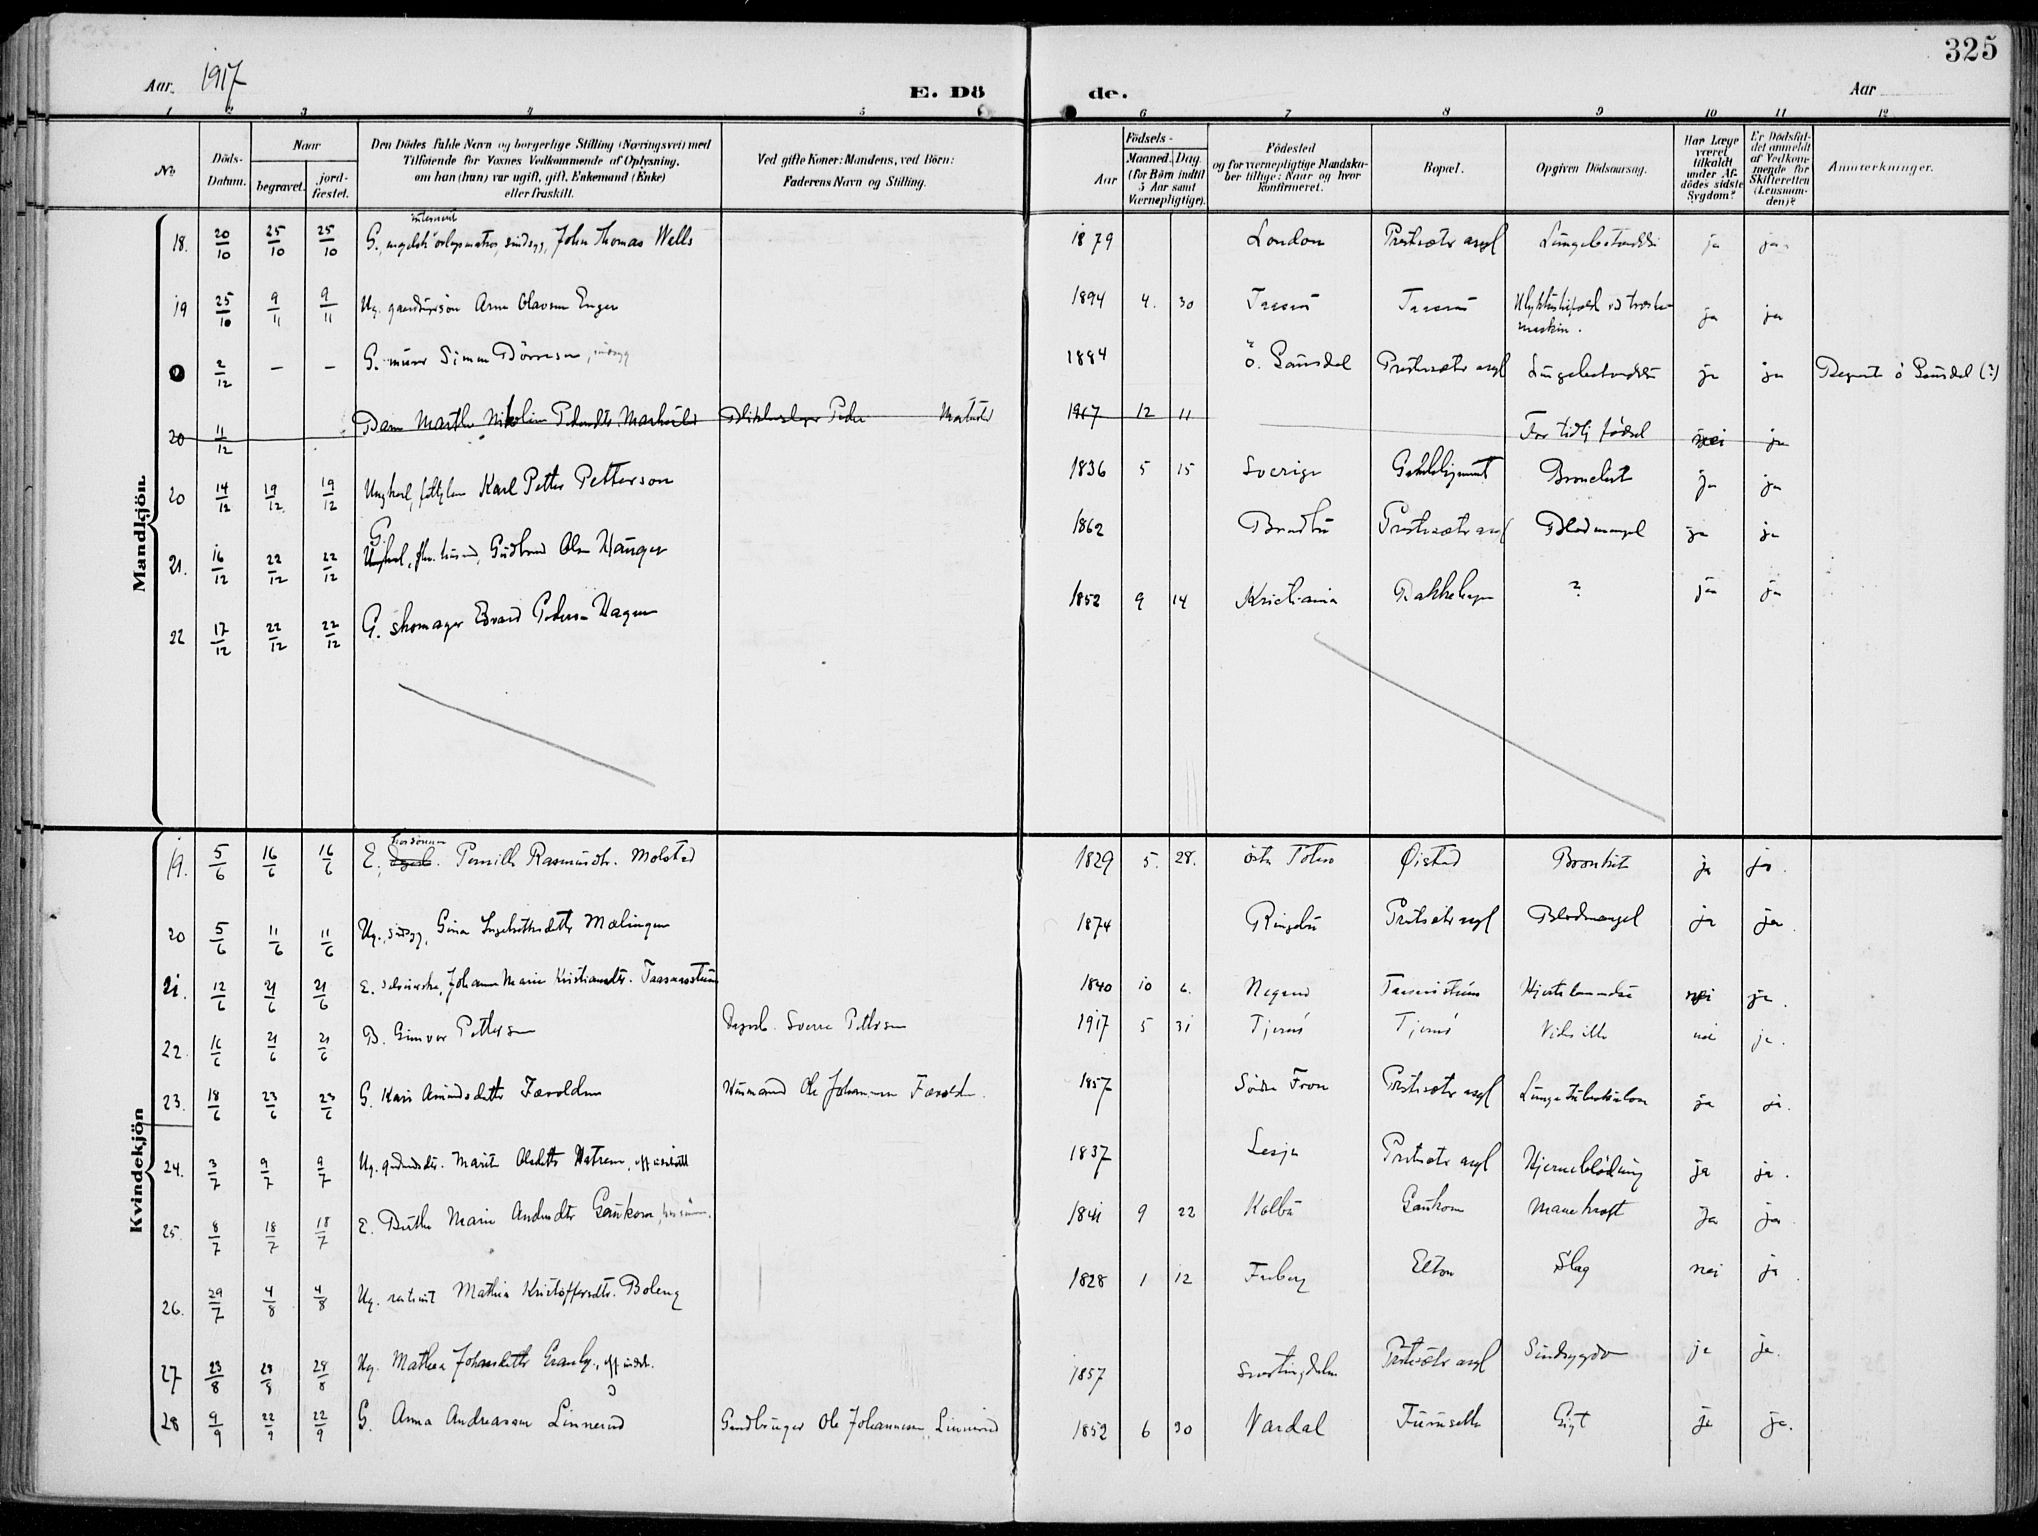 325
Aar. 1917
E. Dö
de.
Aar
1 2 3 4 5 6
6 7 8 9 10 11 12
No
Döds-Datum.
Naar
begravet.
jord-fæstet.
Den Dödes fulde Navn og borgerlige Stilling (Næringsvei) med
Tilföiende for Voxnes Vedkommende af Oplysning,
om han (hun) var ugift, gift, Enkemand (Enke)
eller fraskilt.
Ved gifte Koner: Mandens, ved Börn:
Faderens Navn og Stilling.
Aar
Födsels-
Maaned. Dag.
(for Börn indtil
5 Aar samt
Værnepligtige).
Födested
og for værnepligtige Mandskaber tillige: Naar og hvor
konfirmeret.
Bopæl.
Opgiven Dödsaarsag.
Har Læge
været
tilkaldt
under Afdödes sidste
Sygdom?
Er Dödsfaldet anmeldt
af Vedkommende for
Skifteretten
(Lensmanden)?
Anmerkninger.
Mandkjön.
18. 20/10 25/10 25/10 G., internert engelsk orlogsmatros, sindsyg, John Thomas Wells 1879 London Prestsæter asyl Lungebetændelse ja ja
19 25/10 9/11 9/11 Ug. gaardbrugersön Arne Olavsen Enger 1894 4. 30 ja ja
0 2/12 - - G. murer Simen Börresen, sindsyg 1884 ö. Gausdal Prestsæter asyl Lungebetændelse ja ja Begravet ö Gausdal (?)
20 11/12 Barn Marthe Nikoline 1917 12 11 For tidlig födsel nei ja
20 14/12 19/12 19/12 Ungkarl, fattiglem Karl Petter Petterson 1836 5 15 Sverige Bronchit ja ja
21. 16/12 22/12 22/12 G. Gudbrand Olsen Hauger 1862 Brandbu Prestsæter asyl Blodmangel ja ja
22 17/12 22/12 22/12 G. skomager Edvard Pedersen Hagen 1852 9 14 Kristiania Bakkehagen ? ja ja
Kvindekjön
19. 5/6 16/6 16/6 E. Pernille Rasmusdtr. Molstad 1829 5. 28. östre Toten Øistad Bronkit ja ja.
20 5/6 11/6 11/6 Ug., sindsyg, Gina Ingebrethsdatter Mælingen 1874 Ringebu Prestsæter asyl Blodmangel ja ja.
21. 12/6 21/6 21/6 E. Johanne Marie Kristiansdtr. 1840 10 6. Hjertelammelse nei ja.
22. 16/6 21/6 21/6 B. Gunvor Pettersen Dagarb. Sverre Pettersen 1917 5 31 Tjernö Tjernö nei ja.
23. 18/6 23/6 23/6 G. Kari Amundsdatter Færolden Husmand Ole Johannesen Færolden. 1857 Söndre Fron Prestsæter asyl Lungetuberkulose ja ja.
24. 3/7 9/7 9/7 Ug. Marit Olsdatter 1837 Lesja Prestsæter asyl Hjerneblödning ja ja.
25. 8/7 18/7 18/7 E. Berthe Marie Andersdtr Gaukom 1841 9 22 Kolbu Gaukom Mavekræft ja ja.
26. 29/7 4/8 4/8 Ug. Mathea Kristoffersdtr. Boleng 1828 1 12 Furberg Elton Slag nei ja
27 23/8 28/8 28/8 Ug. Mathea Johansdatter 1857 Prestsæter asyl Sindsygdom ja ja.
28 9/9 22/9 22/9 G. Anna Andreassen Linnerud Gaardbruger Ole Johannessen Linnerud 1852 6 30 Vardal Gigt ja ja.